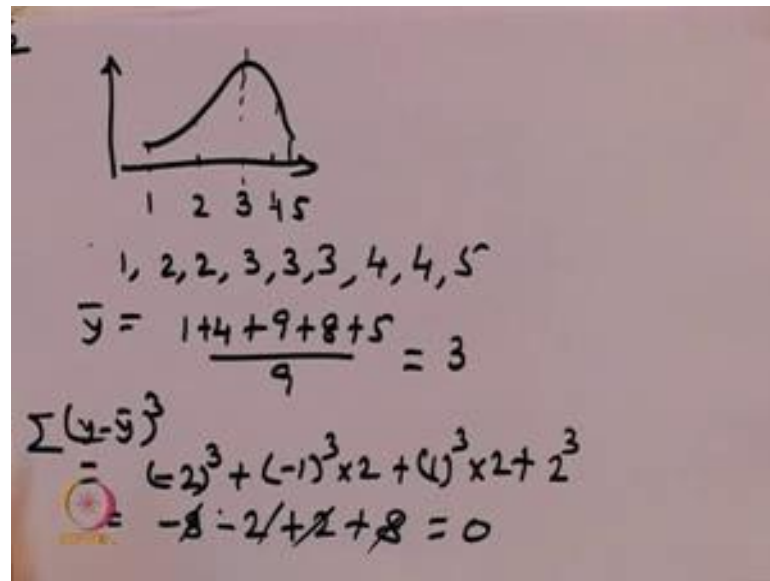 2
1 2 3 4 5
1, 2, 2, 3, 3, 3, 4, 4, 5
ȳ = (1+4+9+8+5)/9 = 3
Σ(y-ȳ)³
= (-2)³ + (-1)³×2 + (1)³×2 + 2³
= -8 - 2 + 2 + 8 = 0